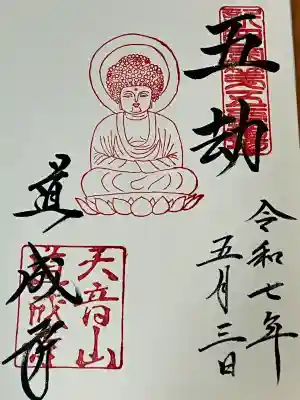 五劫
令和七年
五月三日
道成寺
天音山
道成寺